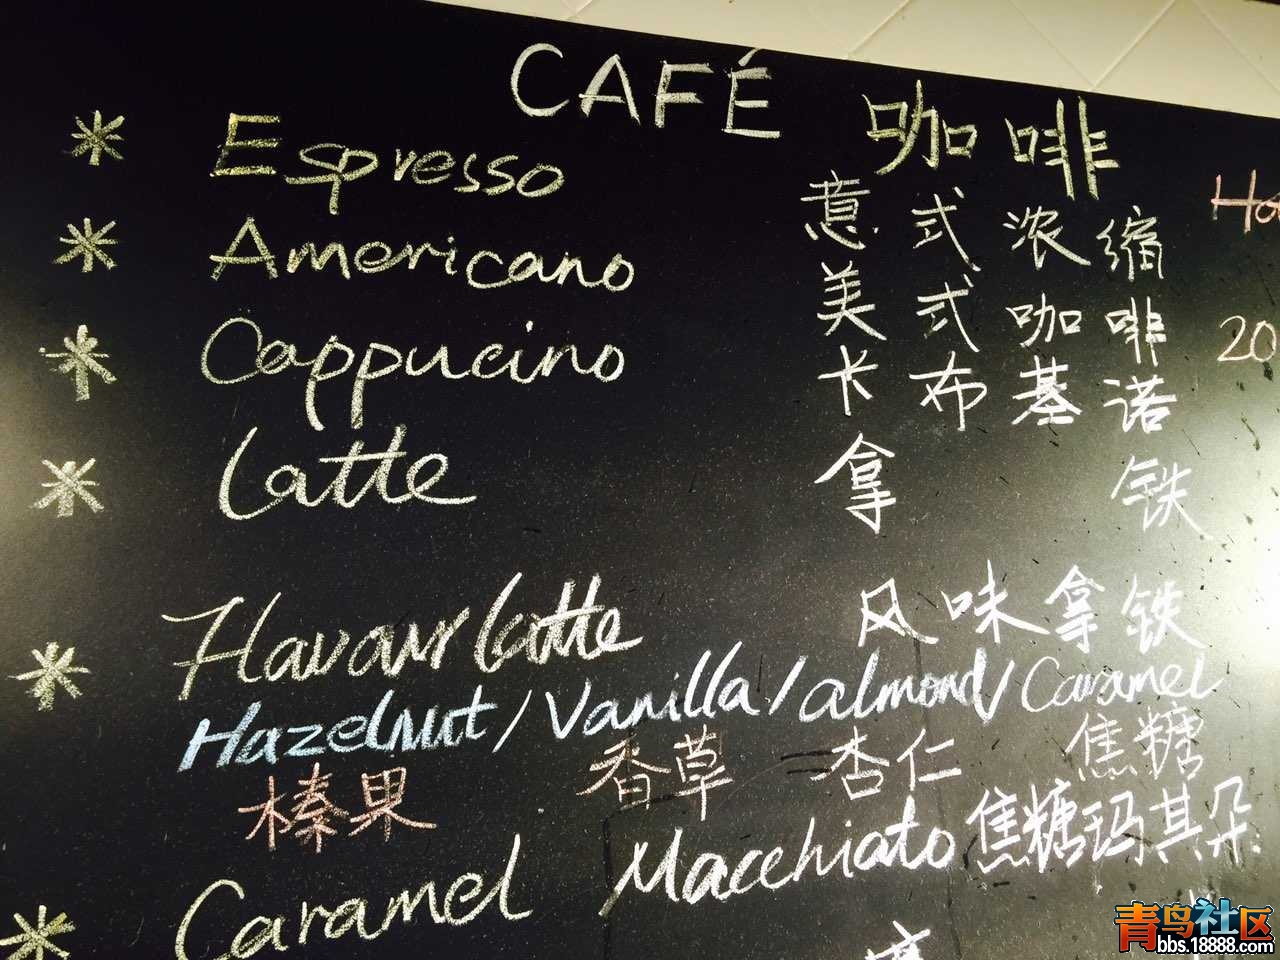 CAFÉ 咖啡
* Espresso 意式浓缩
* Americano 美式咖啡
* Cappucino 卡布基诺 20
* Latte 拿铁
* Flavour latte 风味拿铁
Hazelnut/Vanilla/almond/Caramel
榛果 香草 杏仁 焦糖
* Caramel Macchiato 焦糖玛其朵
青鸟社区
bbs.18888.com